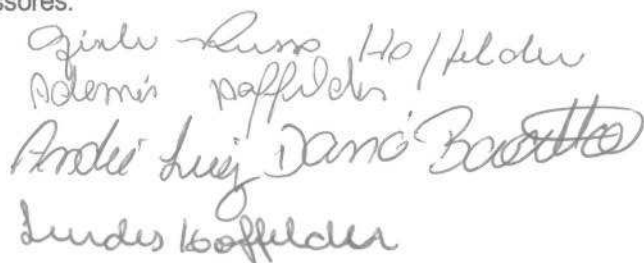 ssores.
Gisele Russo Hoffelder
Ademir Hoffelder
André Luiz Danió
Lurdes Hoffelder